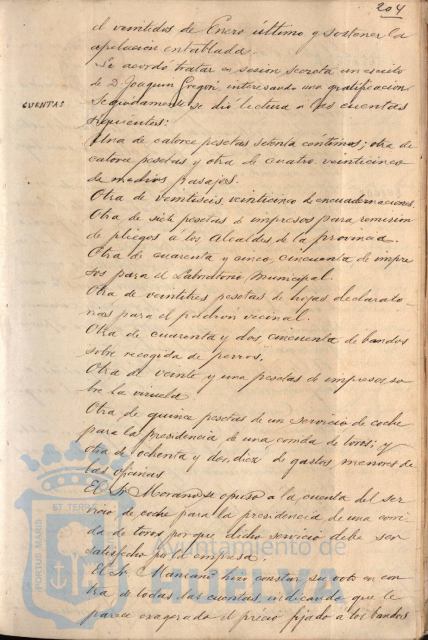 204
el veintidos de Enero último y sostener la
apelacion entablada.
Se acordó tratar en sesion secreta un escrito
de D. Joaquin Gregori, interesando una gratificacion.
CUENTAS
Seguidamente se dió lectura a las cuentas
siguientes:
Una de catorce pesetas setenta centimos; otra de
catorce pesetas y otra de cuatro veinticinco
de medios pasajes.
Otra de veintiseis veinticinco de encuadernaciones.
Otra de siete pesetas de impresos para remision
de pliegos a los Alcaldes de la provincia.
Otra de cuarenta y cinco, cincuenta de impre
sos para el Laboratorio Municipal.
Otra de veintitres pesetas de hojas declarato
rias para el padron vecinal.
Otra de cuarenta y dos, cincuenta de bandos
sobre recogida de perros.
Otra de veinte y una pesetas de impresos so
bre la viruela
Otra de quince pesetas de un servicio de coche
para la presidencia de una corrida de toros; y
otra de ochenta y dos, diez de gastos menores de
las oficinas
El Sr. Morano se opuso a la cuenta del ser
vicio de coche para la presidencia de una corri
da de toros por que dicho servicio debe ser
satisfecho por la empresa.
El Sr. Manzano hizo constar su voto en con
tra de todas las cuentas indicando que le
parece exagerado el precio fijado a los bandos
Ayuntamiento de
HUELVA
PORTUS MARIS
ET TERRE